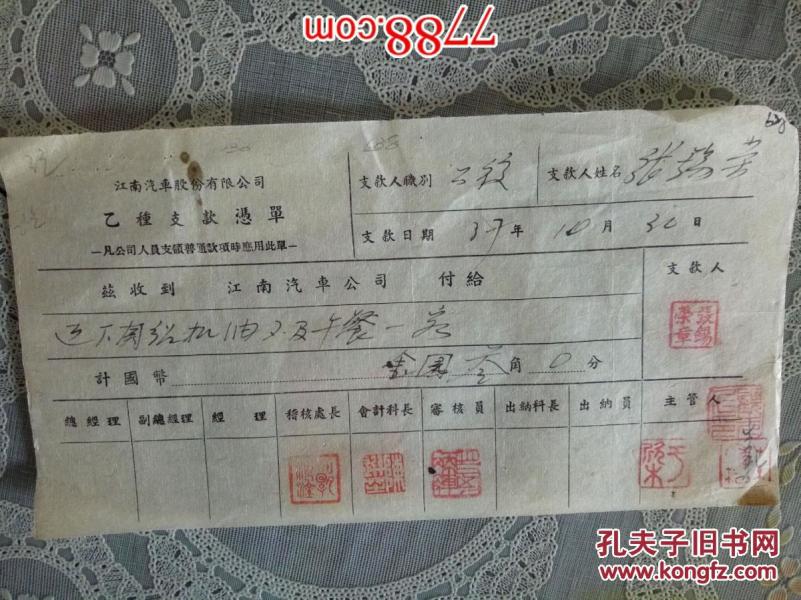 7788.com
江南汽車股份有限公司
乙種支款憑單
—凡公司人員支領普通款項時應用此單—
支款人職別 公役
支款人姓名 張錫榮
支款日期 37年10月30日
茲收到 江南汽車公司 付給
支款人
午餐一
計國幣 金圓 叁角0分
總經理
副總經理
經理
稽核處長
會計科長
審核員
出納科長
出納員
主管人
孔夫子旧书网
www.kongfz.com